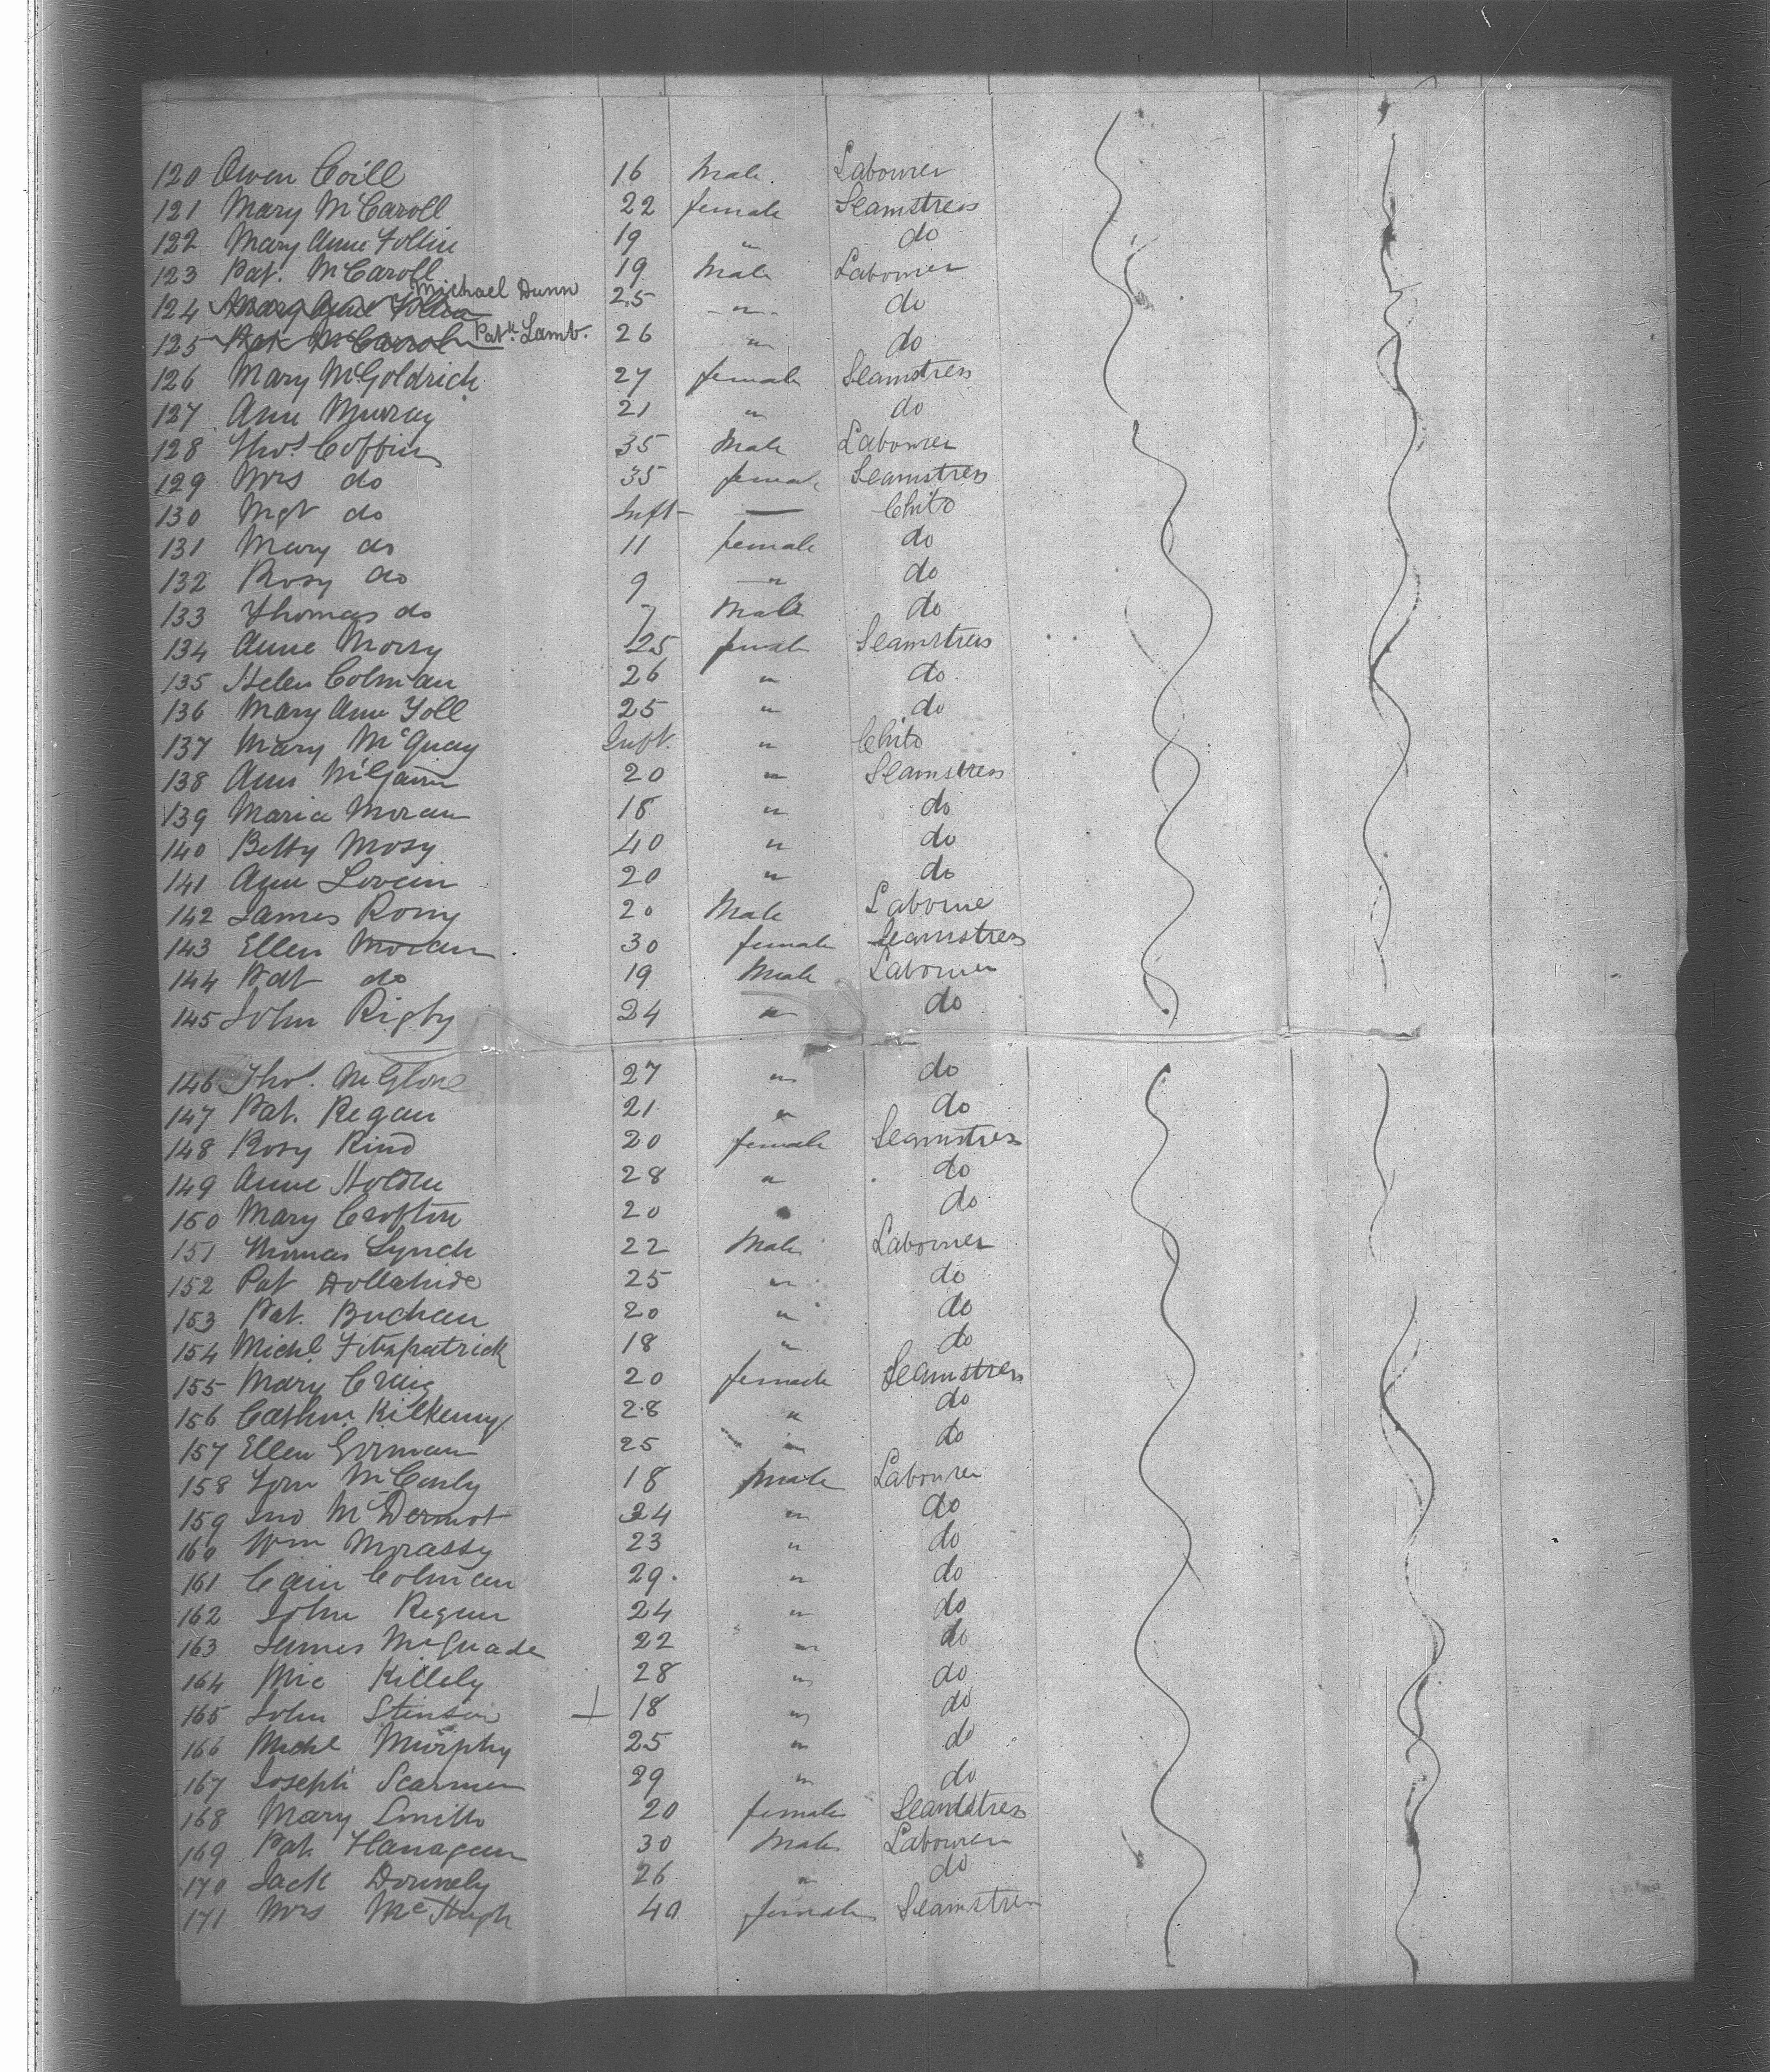 120 Owen Coill 16 Male. Labourer
121 Mary McCaroll 22 female Seamstress
122 Mary Anne Follin 19 " do
123 Pat. McCaroll 19 Male Labourer
124 Mary Anne Follin Michael Dunn 25 " do
125 Pat McCarrol Patk. Lamb. 26 " do
126 Mary McGoldrick 27 female Seamstress
127 Ann Murray 21 " do
128 Thos. Coffin 35 Male Labourer
129 Mrs do 35 female Seamstress
130 Mgt do Inft — Child
131 Mary do 11 female do
132 Rosy do 9 " do
133 Thomas do 7 Male do
134 Anne Morsy 25 female Seamstress
135 Helen Colman 26 " do
136 Mary Ann Toll 25 " do
137 Mary McQuay Inft. " Child
138 Ann McGann 20 " Seamstress
139 Maria Moran 18 " do
140 Betty Mosy 40 " do
141 Ann Lovein 20 " do
142 James Rony 20 Male Laborue
143 Ellen Moran 30 female Seamstress
144 Pat do 19 Male Labourer
145 John Rigby 24 " do
146 Thos. McGlone 27 " do
147 Pat. Regan 21 " do
148 Rosy Rind 20 female Seamstress
149 Anne Holden 28 " do
150 Mary Crofton 20 " do
151 Thomas Lynch 22 Male Labourer
152 Pat Dollahide 25 " do
153 Pat. Buchan 20 " do
154 Michl. Fitzpatrick 18 " do
155 Mary Craig 20 female Seamstress
156 Cathn. Kilkenny 28 " do
157 Ellen Gorman 25 " do
158 Tom McCauly 18 Male Labourer
159 Jno McDermot 24 " do
160 Wm Morassy 23 " do
161 Cain Colman 29. " do
162 John Regan 24 " do
163 James McQuade 22 " do
164 Mic Killely 28 " do
165 John Stinson + 18 " do
166 Michl Murphy 25 " do
167 Joseph Scarmen 29 " do
168 Mary Smith 20 female Seamstress
169 Pat. Flanagan 30 Male Labourer
170 Jack Donnely 26 " do
171 Mrs McHugh 40 female Seamstress